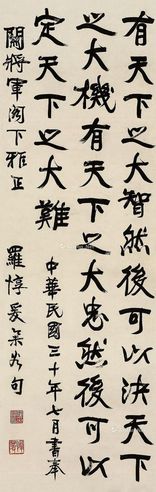 有天下之大智然後可以決天下
之大機有天下之大忠然後可以
定天下之大難
中華民國三十年七月書奉
將軍閣下雅正
羅惇㬊集句